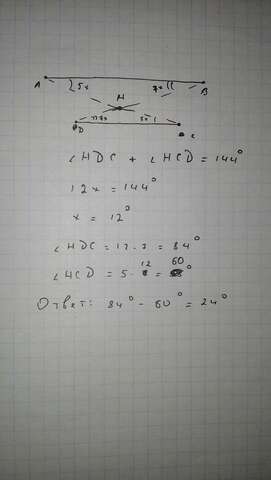 A 5x M 7x B
D 7x 5x C
∠HDC + ∠HCD = 144°
12x = 144°
x = 12°
∠HDC = 12·7 = 84°
∠HCD = 5·12 = 60°
Ответ: 84° - 60° = 24°